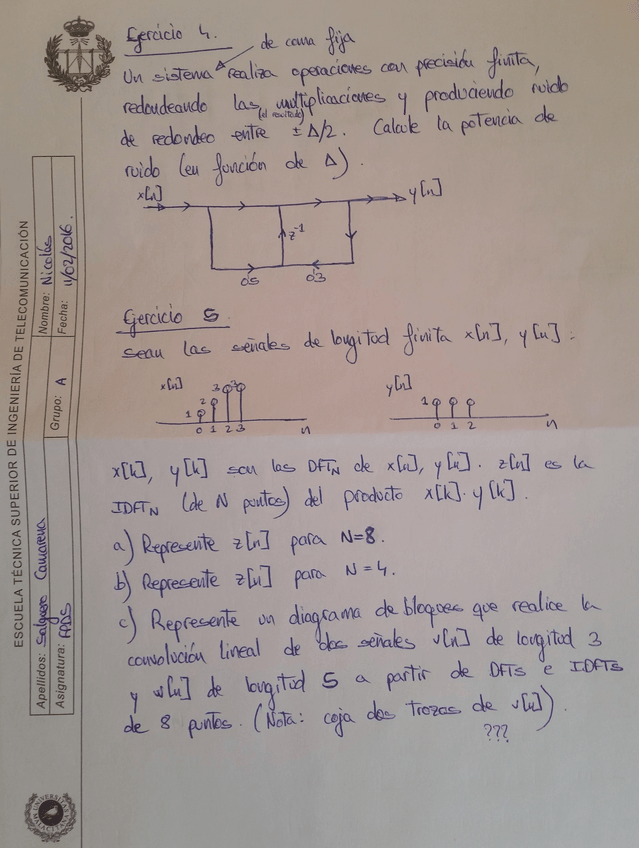 Ejercicio 4.
de coma fija
Un sistema realiza operaciones con precisión finita,
redondeando las multiplicaciones y produciendo ruido
(el resultado)
de redondeo entre ± Δ/2. Calcule la potencia de
ruido (en función de Δ).
x[n] y[n]
z⁻¹
0'5 0'3
Ejercicio 5
Sean las señales de longitud finita x[n], y[n]:
x[n] y[n]
1 2 3 3 1
0 1 2 3 n 0 1 2 n
X[k], Y[k] son las DFT_N de x[n], y[n]. z[n] es la
IDFT_N (de N puntos) del producto X[k]·Y[k].
a) Represente z[n] para N=8.
b) Represente z[n] para N=4.
c) Represente un diagrama de bloques que realice la
convolución lineal de dos señales v[n] de longitud 3
y w[n] de longitud 5 a partir de DFTs e IDFTs
de 8 puntos. (Nota: coja dos trozos de v[n]).
???
ESCUELA TÉCNICA SUPERIOR DE INGENIERÍA DE TELECOMUNICACIÓN
Apellidos: Salguero Camarena Nombre: Nicolás
Asignatura: FPDS Grupo: A Fecha: 11/02/2016.